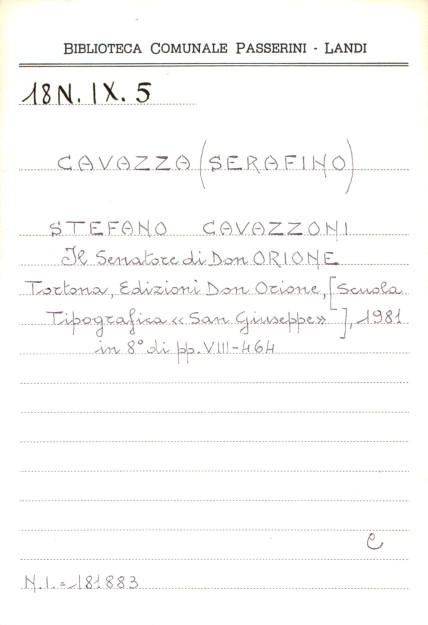 BIBLIOTECA COMUNALE PASSERINI - LANDI
18N. IX. 5
CAVAZZA (SERAFINO)
STEFANO CAVAZZONI
Il Senatore di Don ORIONE
Tortona, Edizioni Don Orione, [Scuola
Tipografica « San Giuseppe» ], 1981
in 8° di pp. VIII-464
C
N.I. = 181883